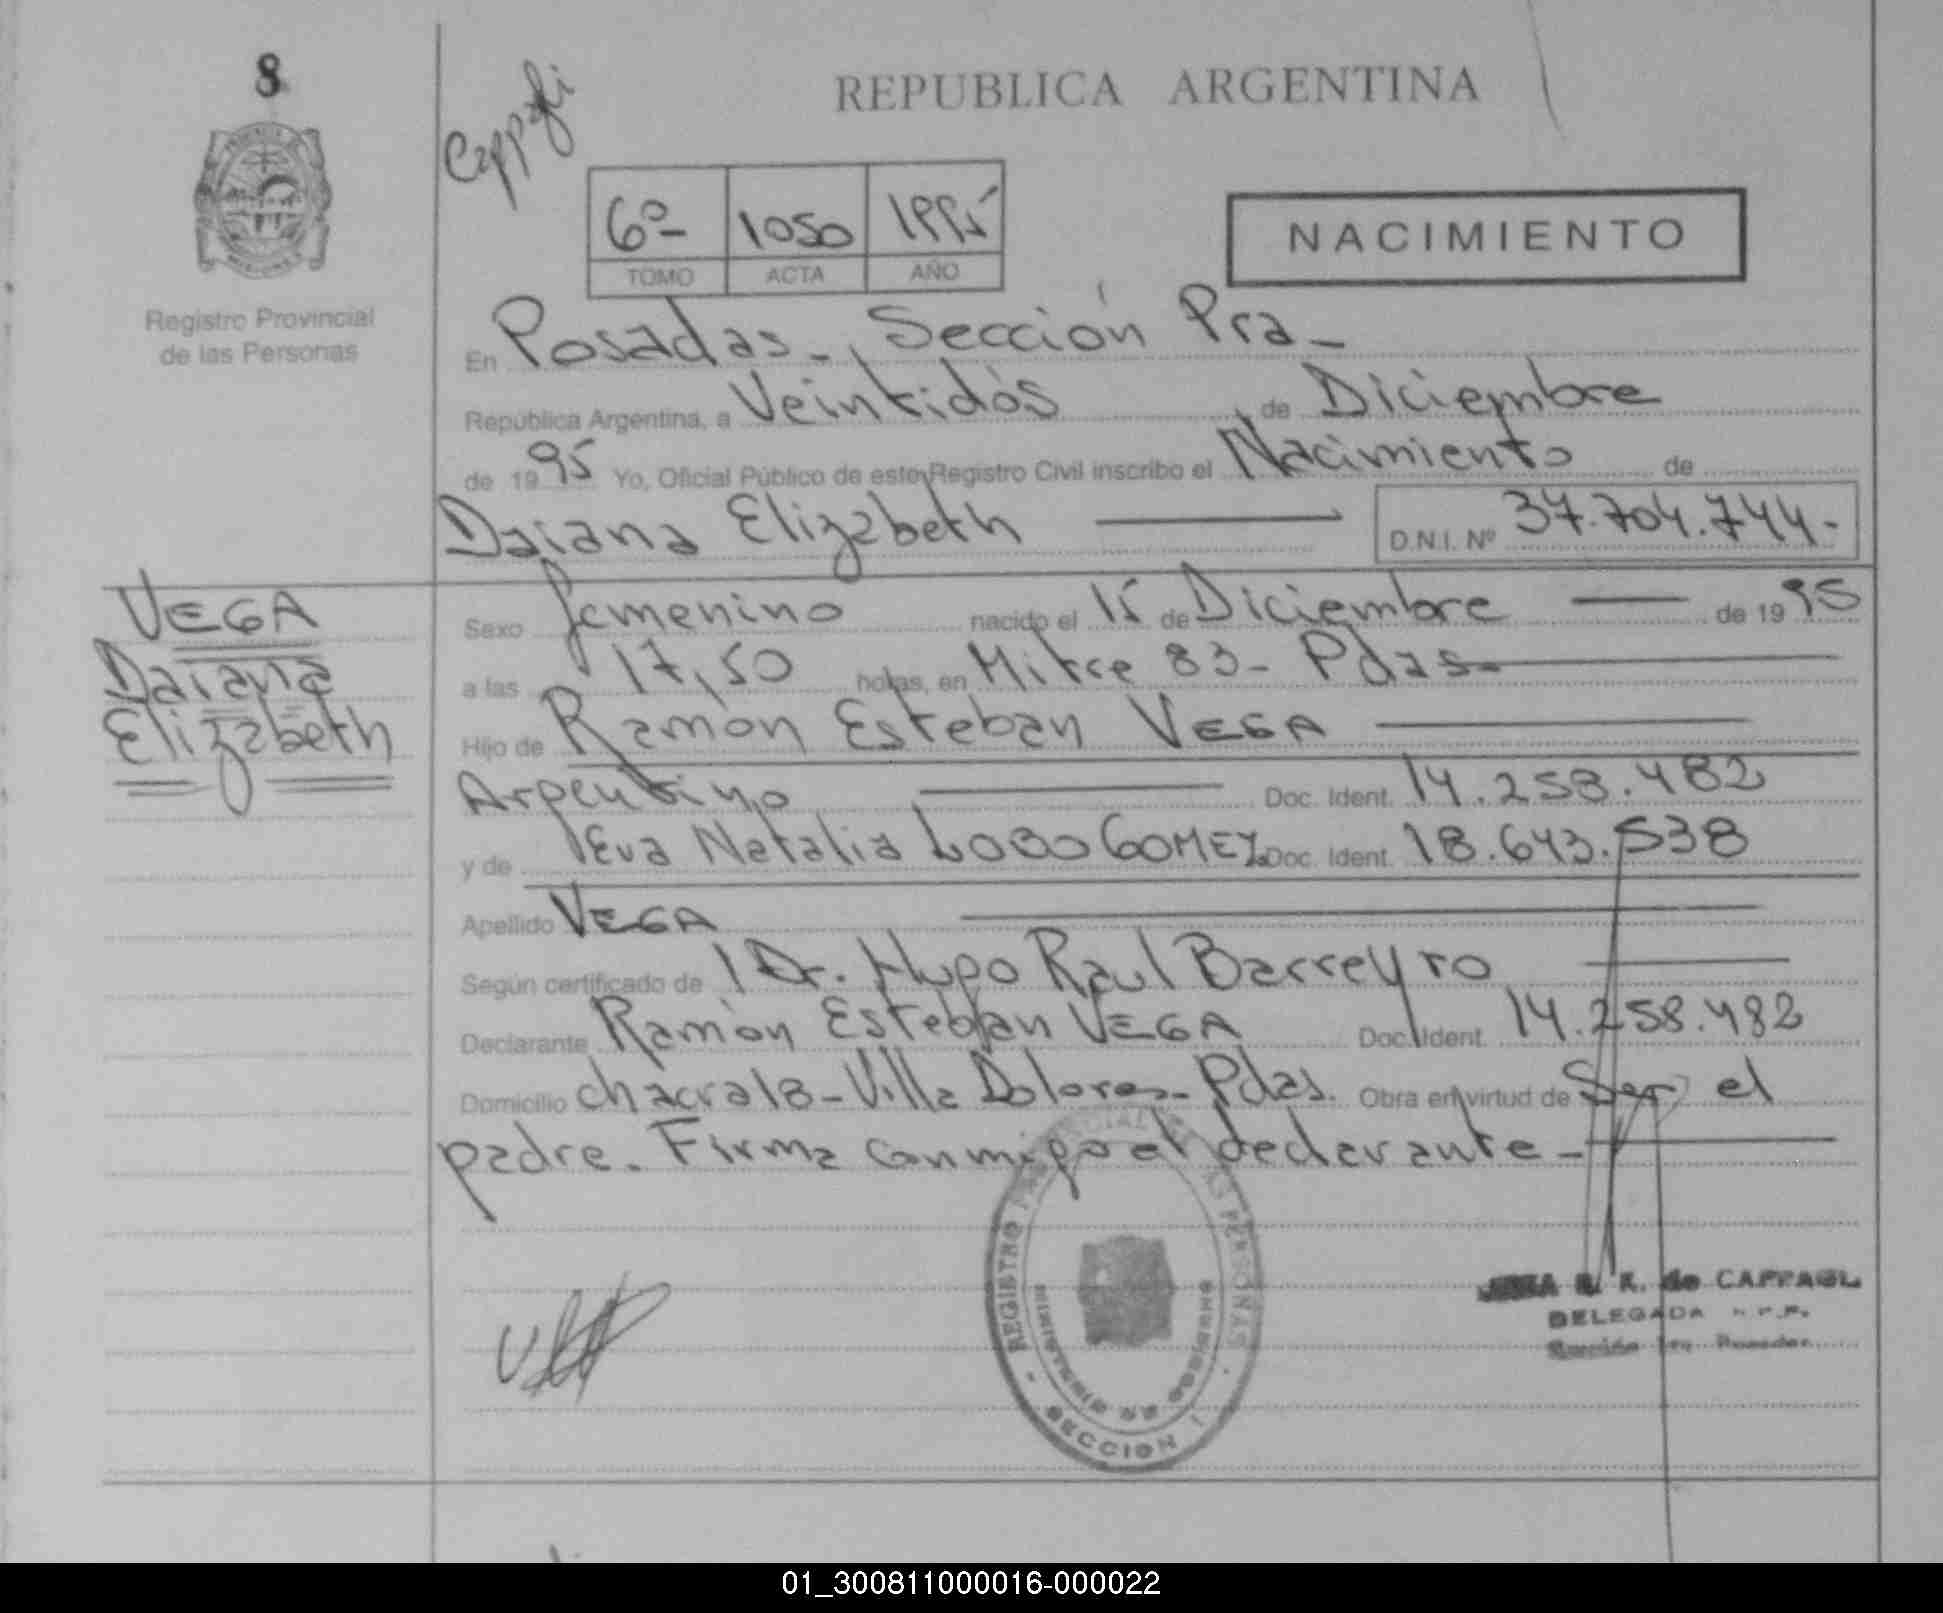 8
REPUBLICA ARGENTINA
6º 1050 1995
TOMO ACTA AÑO
NACIMIENTO
Registro Provincial
de las Personas
En Posadas-, Sección Pra-
República Argentina, a Veintidós de Diciembre
de 1995 Yo, Oficial Público de este Registro Civil inscribo el Nacimiento de
Daiana Elizabeth D.N.I. Nº 37.704.744-
VEGA
Daiana
Elizabeth
Sexo femenino nacido el 15 de Diciembre de 1995
a las 17,50 horas, en Mitre 83- Pdas-
Hijo de Ramón Esteban VEGA
Argentino Doc. Ident. 14.258.482
y de Eva Natalia LOBO GOMEZ Doc. Ident. 18.643.538
Apellido VEGA
Según certificado de Dr. Hugo Raul Barreyro
Declarante Ramón Esteban VEGA Doc. Ident. 14.258.482
Domicilio chacra 18-Villa Dolores- Pdas. Obra en virtud de Ser el
padre. Firma conmigo el declarante-
REGISTRO PROVINCIAL DE LAS PERSONAS
MINISTERIO DE GOBIERNO
SECCION 1
R. K. de CAPPAGLI
DELEGADA R.P.P.
Sección 1ra Posadas
01_300811000016-000022